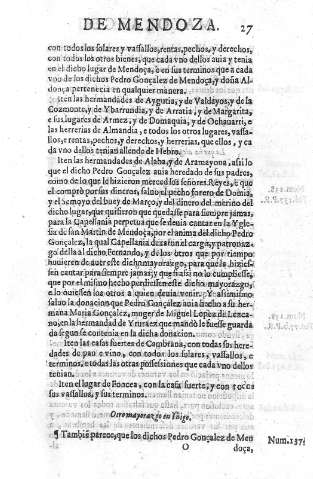 DE MENDOZA. 27
con todos los solares y vassallos, rentas, pechos, y derechos,
con todos los otros bienes, que cada vno dellos auia y tenia
en el dicho lugar de Mendoça, ò en sus terminos que a cada
vno de los dichos Pedro Gonçalez de Mendoça, y doña Al-
donça pertenecia en qualquier manera.
Iten las hermandades de Aygutia, y de Valdayos, y de la
Cozmonte, y de Ybarrundia, y de Arratia, y de Margarita,
e sus lugares de Armez, y de Domaquia, y de Ochauarri, e
las herrerias de Almandia, e todos los otros lugares, vassa-
llos, e rentas, pechos, y derechos, y herrerias, que ellos, y ca
da vno dellos tenian allende de Hebro.
Iten las hermandades de Alaba, y de Arameyona, assi lo
que el dicho Pedro Gonçalez auia heredado de sus padres,
como de lo que le hizieron merced los señores Reyes, è que
el comprò por sus dineros, saluo el pecho forero de
y el Semoyo del buey de Março, y del dinero del mérito del
dicho lugar, que quisieron que quedasse para siempre jamas,
para la Capellania perpetua que se deuia cantar en la Ygle-
sia de san Martin de Mendoça, por el anima del dicho Pedro
Gonçalez, la qual Capellania dexason al cargo, y patronaz-
go della al dicho Fernando, y de los otros que por tiempo
huuiesen de auer este dicho mayorazgo, para que la hiziess-
sen cantar para siempre jamas, y que si assi no lo cumpliesse,
que por el mismo hecho perdiessen este dicho mayorazgo,
e lo ouiessen los otros a quien deuia venir. Y assimismo
saluo la donacion que Pedro Gonçalez auia hecho a su her-
mana Maria Gonçalez, muger de Miguel Lopez de Lenca-
no, en la hermandad de Yruraez que mandò le fuesse guarda
da segun se contenia en la dicha donacion.
Iten las casas fuertes de Cambrana, con todas sus here-
dades de pan e vino, con todos los solares, vassallos, e
terminos, e todas las otras possessiones que cada vno dellos
tenian.
Iten el lugar de Foncea, con la casa fuerte, y con todos
sus vassallos, y sus terminos.
Otro mayorazgo en Yñigo.
¶ Tambiẽ parece, que los dichos Pedro Gonçalez de Men Num.137.
O doça,